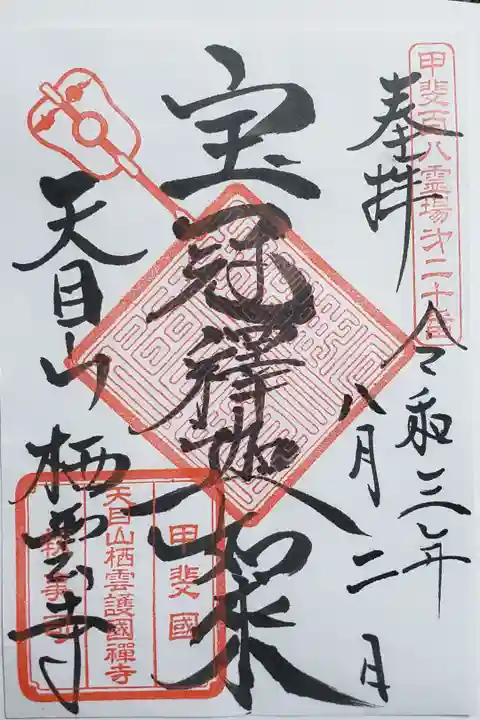 甲斐百八霊場第二十番
奉拝
令和三年
八月二日
宝冠釋迦如来
天目山
栖雲寺
甲斐國
天目山栖雲護國禪寺